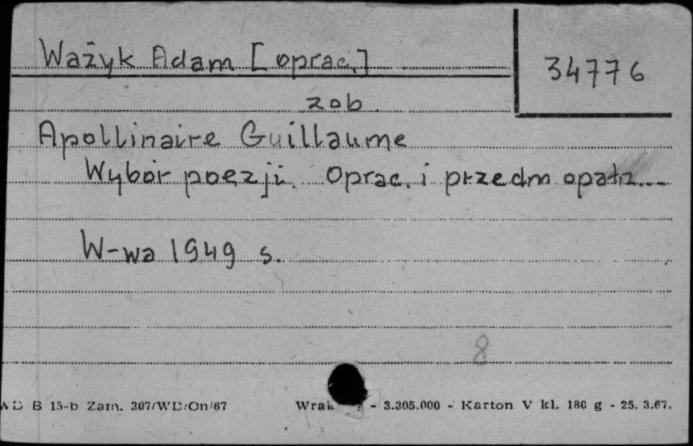 Ważyk Adam [oprac.]
34776
zob.
Apollinaire Guillaume
Wybór poezji. Oprac. i przedm. opatrz...
W-wa 1949 s.
8
B 15-b Zam. 307/WD/On/67 - 3.305.000 - Karton V kl. 180 g - 25. 3.67.